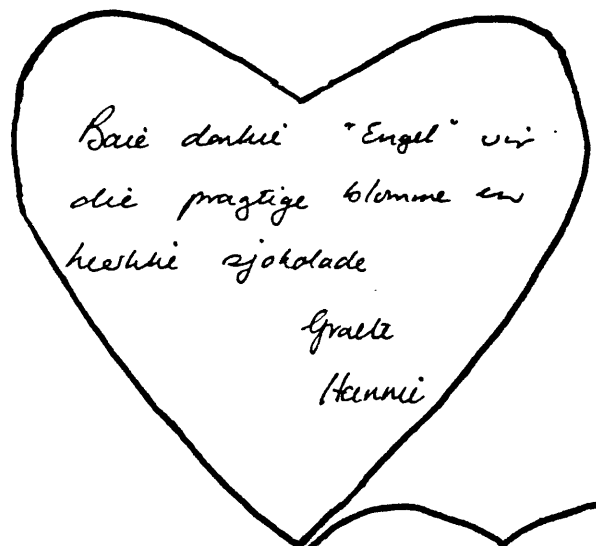 Baie dankie "Engel" vir
die pragtige blomme en
heerlike sjokolade
Groete
Hannie